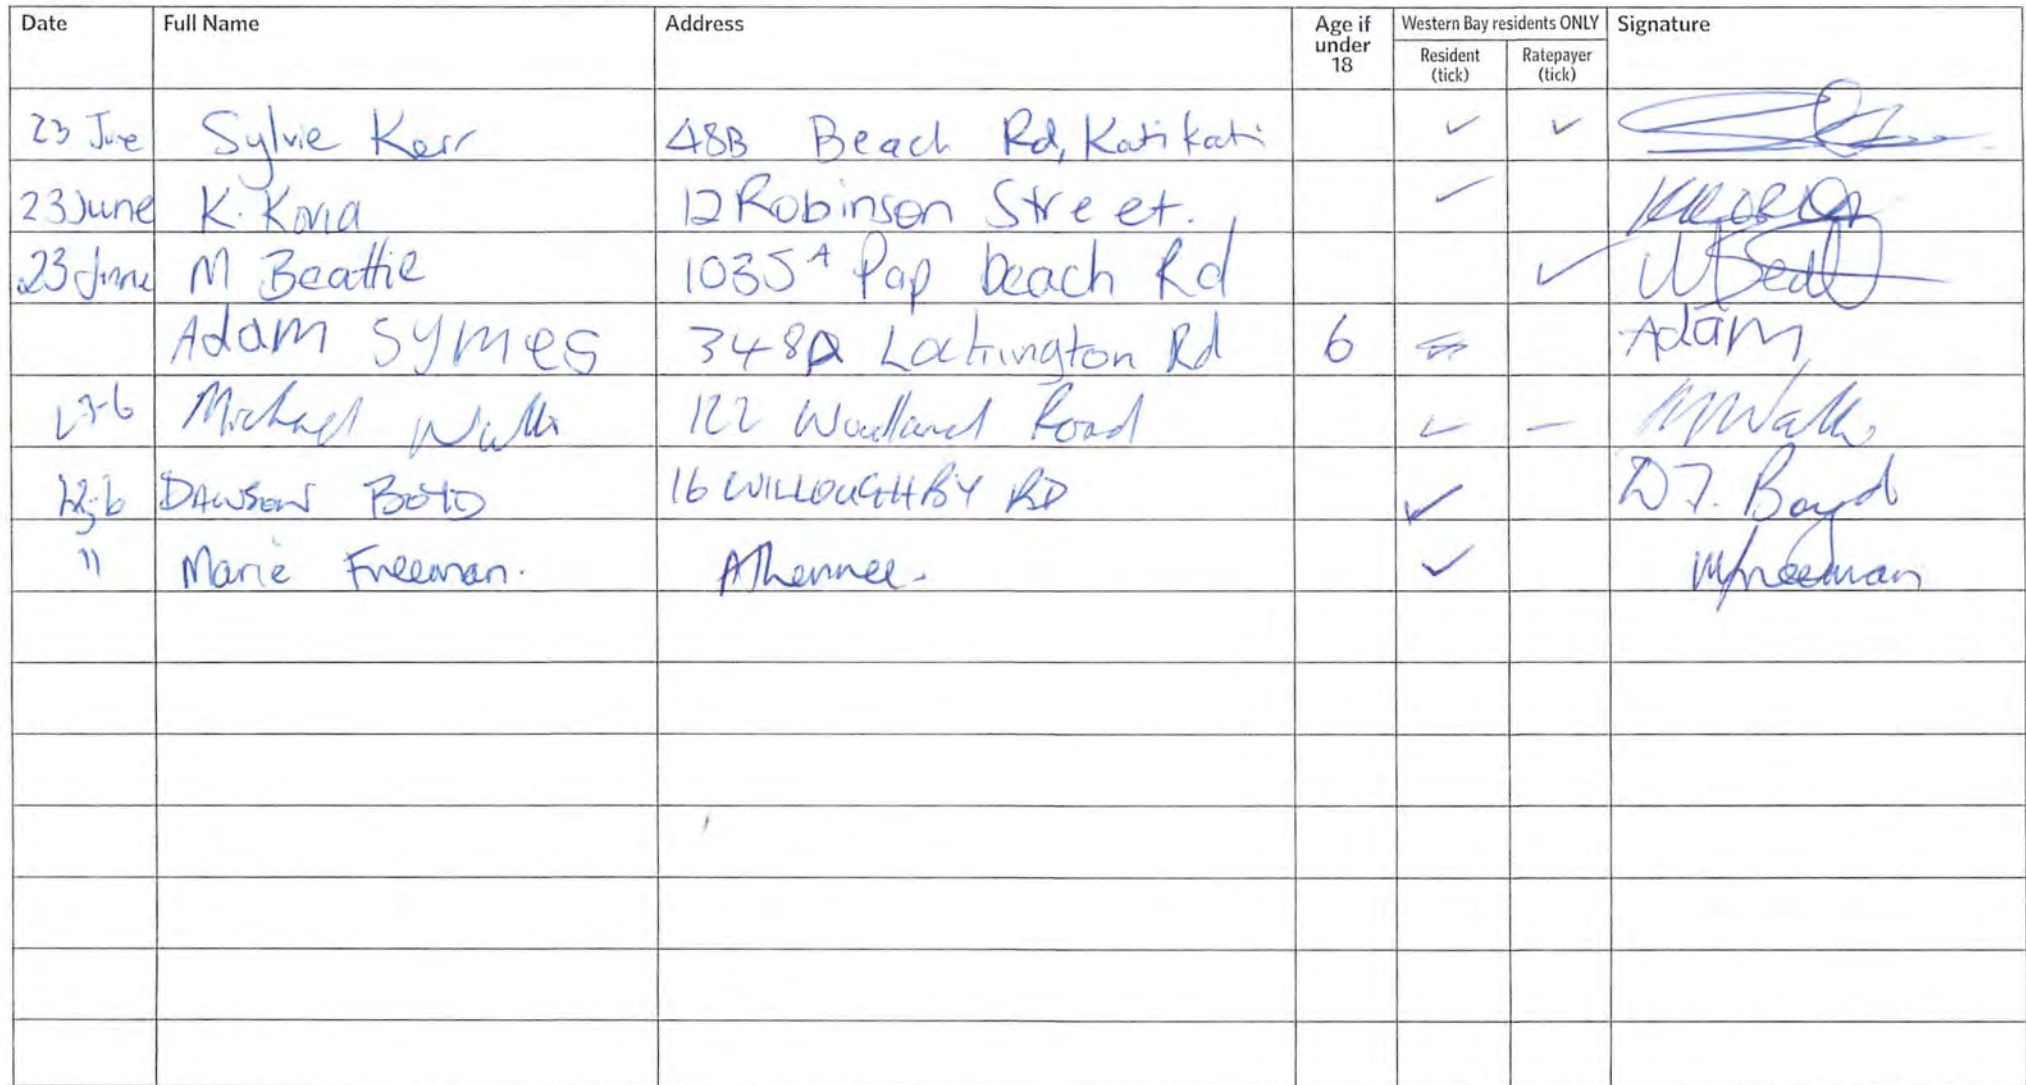 Date Full Name Address Age if under 18 Western Bay residents ONLY Resident (tick) Ratepayer (tick) Signature
23 June Sylvie Kerr 48B Beach Rd, Katikati ✓ ✓
23 June K. Koria 12 Robinson Street. ✓
23 June M Beattie 1035A Pap beach Rd ✓
Adam Symes 348A Lockington Rd 6 Adam
23-6 Michael 122 Woodland Road ✓
23-6 DAWSON BOYD 16 WILLOUGHBY RD ✓ D J. Boyd
" Marie Freeman. Athenree. ✓ Mfreeman